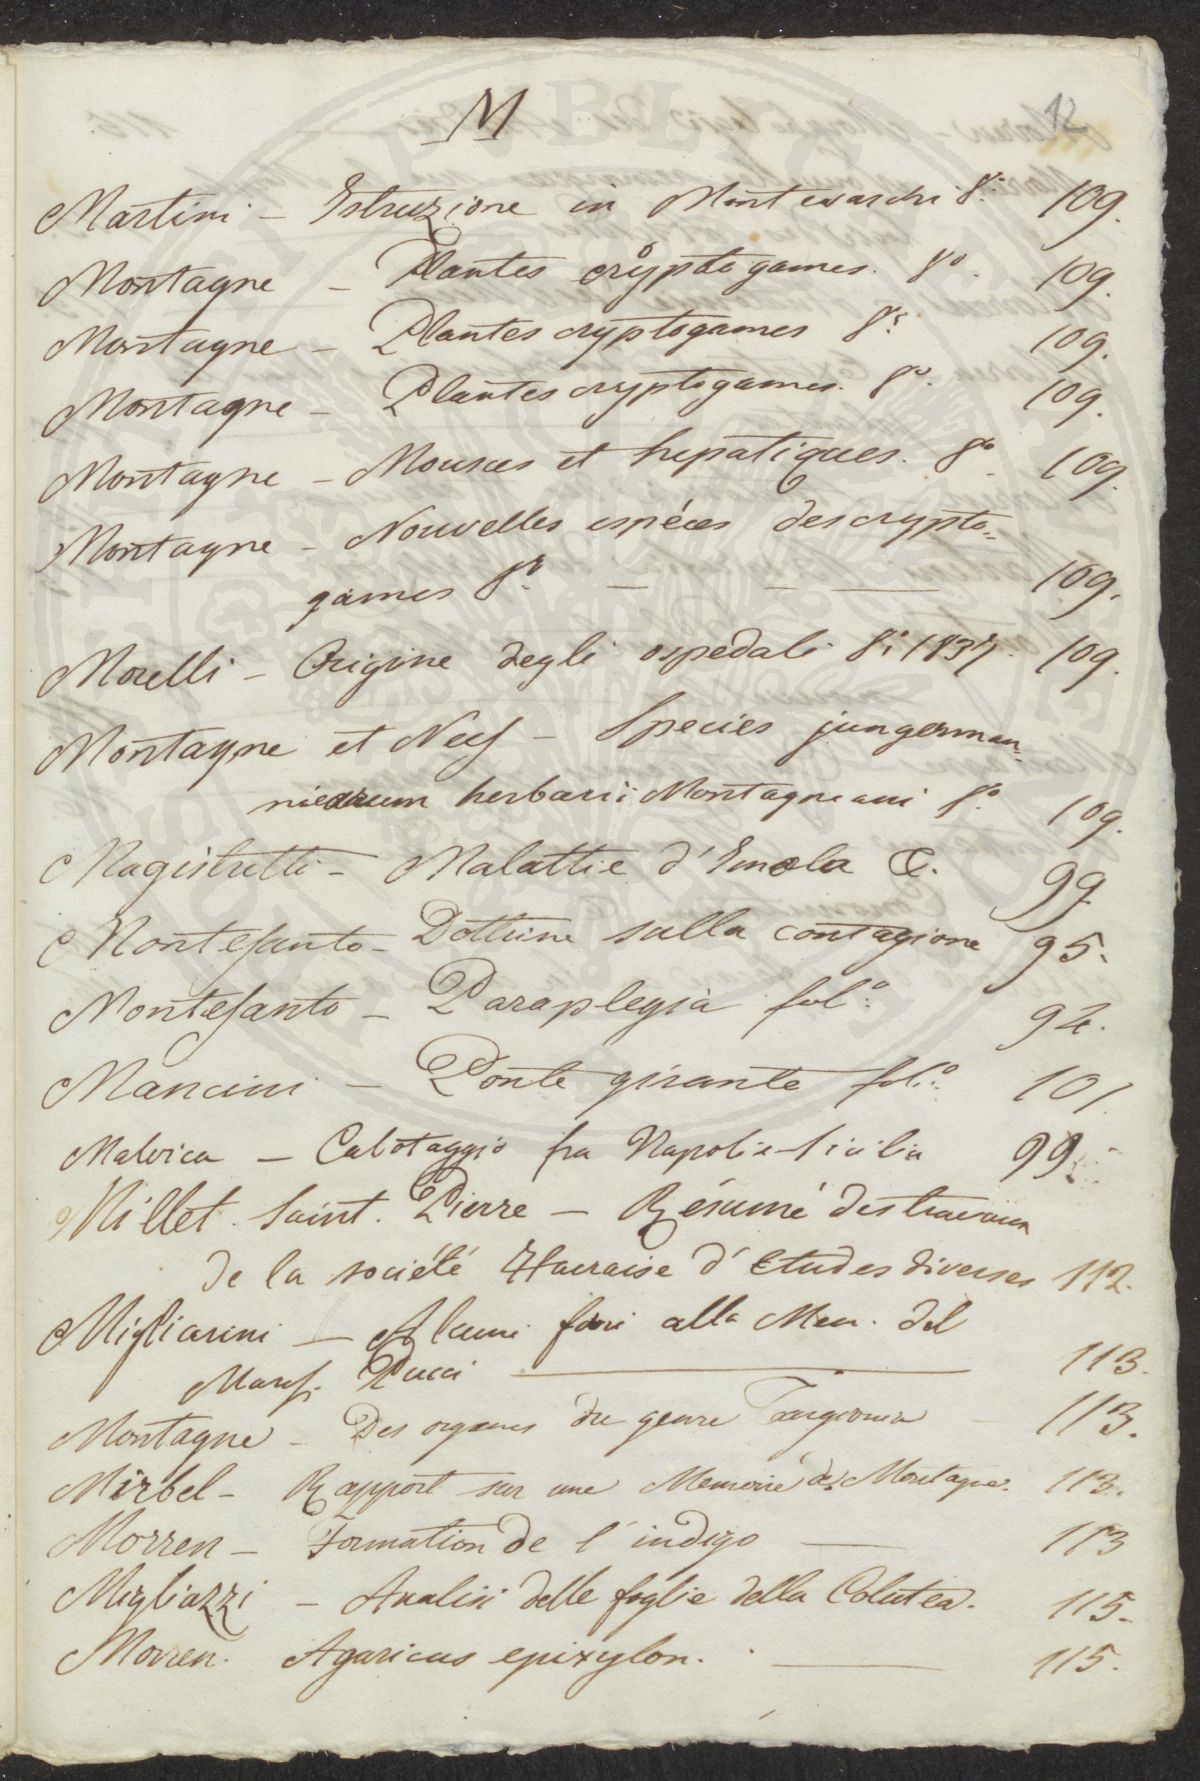 M
12
Martini – Istruzione in Montevarchi 8.º 109.
Montagne – Plantes cryptogames. 8º. 109.
Montagne – Plantes cryptogames 8.º 109.
Montagne – Plantes cryptogames. 8º. 109.
Montagne – Mousses et hepatiques. 8º. 109.
Montagne – Nouvelles espéces des crypto=
games 8.º — — — 109.
Morelli – Origine degli ospedali 8.º 1837. 109.
Montagne et Nees – Species jungerman=
niearum herbarii Montagneani 8.º 109.
Magistretti – Malattie d'Imola &. 99.
Montesanto – Dottrine sulla contagione 95.
Montesanto – Paraplegia fol.º 94.
Mancini – Ponte girante fol.º 101.
Malvica – Cabotaggio fra Napoli e Sicilia 99.
Millet Saint. Pierre – Résumé des travaux
de la société Havraise d'études diverses 112.
Migliarini – Alcuni fiori alla Mem. del
March. Pucci — 113.
Montagne – Des organes du genre Targionia – 113.
Mirbel – Rapport sur une Memoire de Montagne. 113.
Morren – Formation de l'indigo — 113
Migliazzi – Analisi delle foglie della Colutea. 115.
Morren. Agaricus epixylon. — 115.